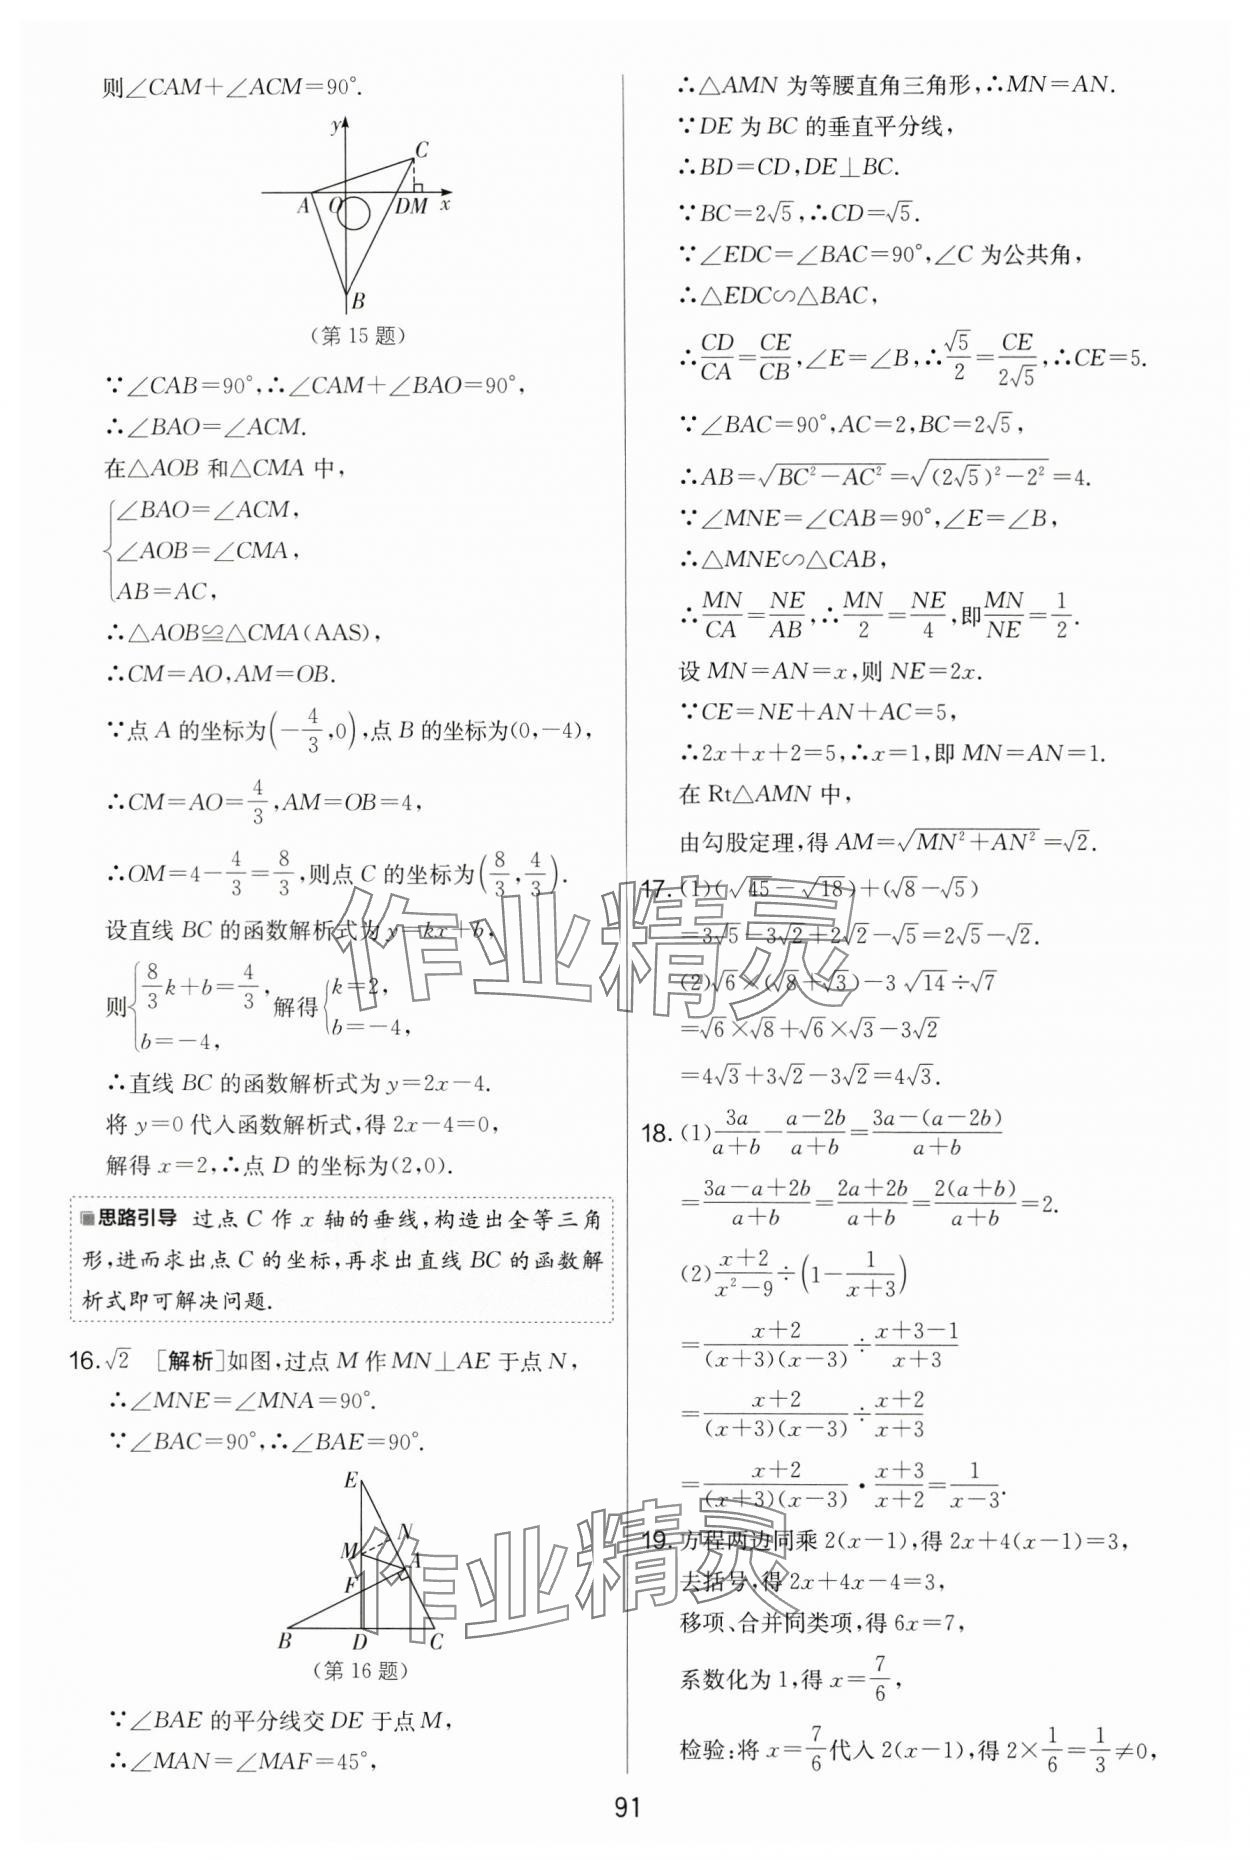 则∠CAM+∠ACM=90°.
y
C
A O DM x
B
(第15题)
∵∠CAB=90°,∴∠CAM+∠BAO=90°,
∴∠BAO=∠ACM.
在△AOB 和△CMA 中,
{∠BAO=∠ACM,
∠AOB=∠CMA,
AB=AC,
∴△AOB≌△CMA(AAS),
∴CM=AO,AM=OB.
∵点 A 的坐标为(-4/3,0),点 B 的坐标为(0,-4),
∴CM=AO=4/3,AM=OB=4,
∴OM=4-4/3=8/3,则点 C 的坐标为(8/3,4/3).
设直线 BC 的函数解析式为 y=kx+b,
则{8/3k+b=4/3, b=-4, 解得{k=2, b=-4,
∴直线 BC 的函数解析式为 y=2x-4.
将 y=0 代入函数解析式,得 2x-4=0,
解得 x=2,∴点 D 的坐标为(2,0).
思路引导 过点 C 作 x 轴的垂线,构造出全等三角
形,进而求出点 C 的坐标,再求出直线 BC 的函数解
析式即可解决问题.
16.√2 [解析]如图,过点 M 作 MN⊥AE 于点 N,
∴∠MNE=∠MNA=90°.
∵∠BAC=90°,∴∠BAE=90°.
E
N
M
A
F
B D C
(第16题)
∵∠BAE 的平分线交 DE 于点 M,
∴∠MAN=∠MAF=45°,
∴△AMN 为等腰直角三角形,∴MN=AN.
∵DE 为 BC 的垂直平分线,
∴BD=CD,DE⊥BC.
∵BC=2√5,∴CD=√5.
∵∠EDC=∠BAC=90°,∠C 为公共角,
∴△EDC∽△BAC,
∴CD/CA=CE/CB,∠E=∠B,∴√5/2=CE/2√5,∴CE=5.
∵∠BAC=90°,AC=2,BC=2√5,
∴AB=√(BC²-AC²)=√((2√5)²-2²)=4.
∵∠MNE=∠CAB=90°,∠E=∠B,
∴△MNE∽△CAB,
∴MN/CA=NE/AB,∴MN/2=NE/4,即MN/NE=1/2.
设 MN=AN=x,则 NE=2x.
∵CE=NE+AN+AC=5,
∴2x+x+2=5,∴x=1,即 MN=AN=1.
在 Rt△AMN 中,
由勾股定理,得 AM=√(MN²+AN²)=√2.
17.(1)(√45-√18)+(√8-√5)
=3√5-3√2+2√2-√5=2√5-√2.
(2)√6×(√8+√3)-3√14÷√7
=√6×√8+√6×√3-3√2
=4√3+3√2-3√2=4√3.
18.(1)3a/(a+b)-(a-2b)/(a+b)=(3a-(a-2b))/(a+b)
=(3a-a+2b)/(a+b)=(2a+2b)/(a+b)=2(a+b)/(a+b)=2.
(2)(x+2)/(x²-9)÷(1-1/(x+3))
=(x+2)/((x+3)(x-3))÷(x+3-1)/(x+3)
=(x+2)/((x+3)(x-3))÷(x+2)/(x+3)
=(x+2)/((x+3)(x-3))·(x+3)/(x+2)=1/(x-3).
19.方程两边同乘 2(x-1),得 2x+4(x-1)=3,
去括号,得 2x+4x-4=3,
移项、合并同类项,得 6x=7,
系数化为 1,得 x=7/6,
检验:将 x=7/6代入 2(x-1),得 2×1/6=1/3≠0,
91
作业精灵
作业精灵